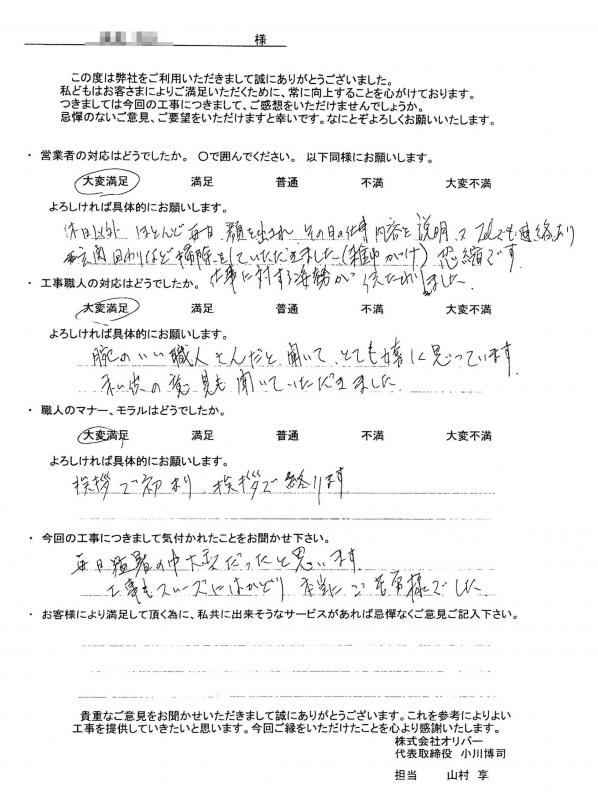 様
この度は弊社をご利用いただきまして誠にありがとうございました。
私どもはお客さまによりご満足いただくために、常に向上することを心がけております。
つきましては今回の工事につきまして、ご感想をいただけませんでしょうか。
忌憚のないご意見、ご要望をいただけますと幸いです。なにとぞよろしくお願いいたします。
・ 営業者の対応はどうでしたか。 〇で囲んでください。 以下同様にお願いします。
大変満足 満足 普通 不満 大変不満
よろしければ具体的にお願いします。
休日以外 ほとんど毎日、顔を出され その日の仕事内容を説明、又 TELでも連絡あり
玄関回りなど掃除をしていただきました(雑巾がけ) 恐縮です。
仕事に対する姿勢が 伝わりました。
・ 工事職人の対応はどうでしたか。
大変満足 満足 普通 不満 大変不満
よろしければ具体的にお願いします。
腕のいい職人さんだと聞いて、とても 思っています。
私共の意見も聞いていただきました。
・ 職人のマナー、モラルはどうでしたか。
大変満足 満足 普通 不満 大変不満
よろしければ具体的にお願いします。
挨拶で初まり、挨拶で終ります
・ 今回の工事につきまして気付かれたことをお聞かせ下さい。
毎日猛暑の中大変だったと思います。
工事もスムーズにはかどり 本当にご苦労様でした。
・ お客様により満足して頂く為に、私共に出来そうなサービスがあれば忌憚なくご意見ご記入下さい。
貴重なご意見をお聞かせいただきまして誠にありがとうございます。これを参考によりよい
工事を提供していきたいと思います。今回ご縁をいただけたことを心より感謝いたします。
株式会社オリバー
代表取締役 小川博司
担当 山村 享